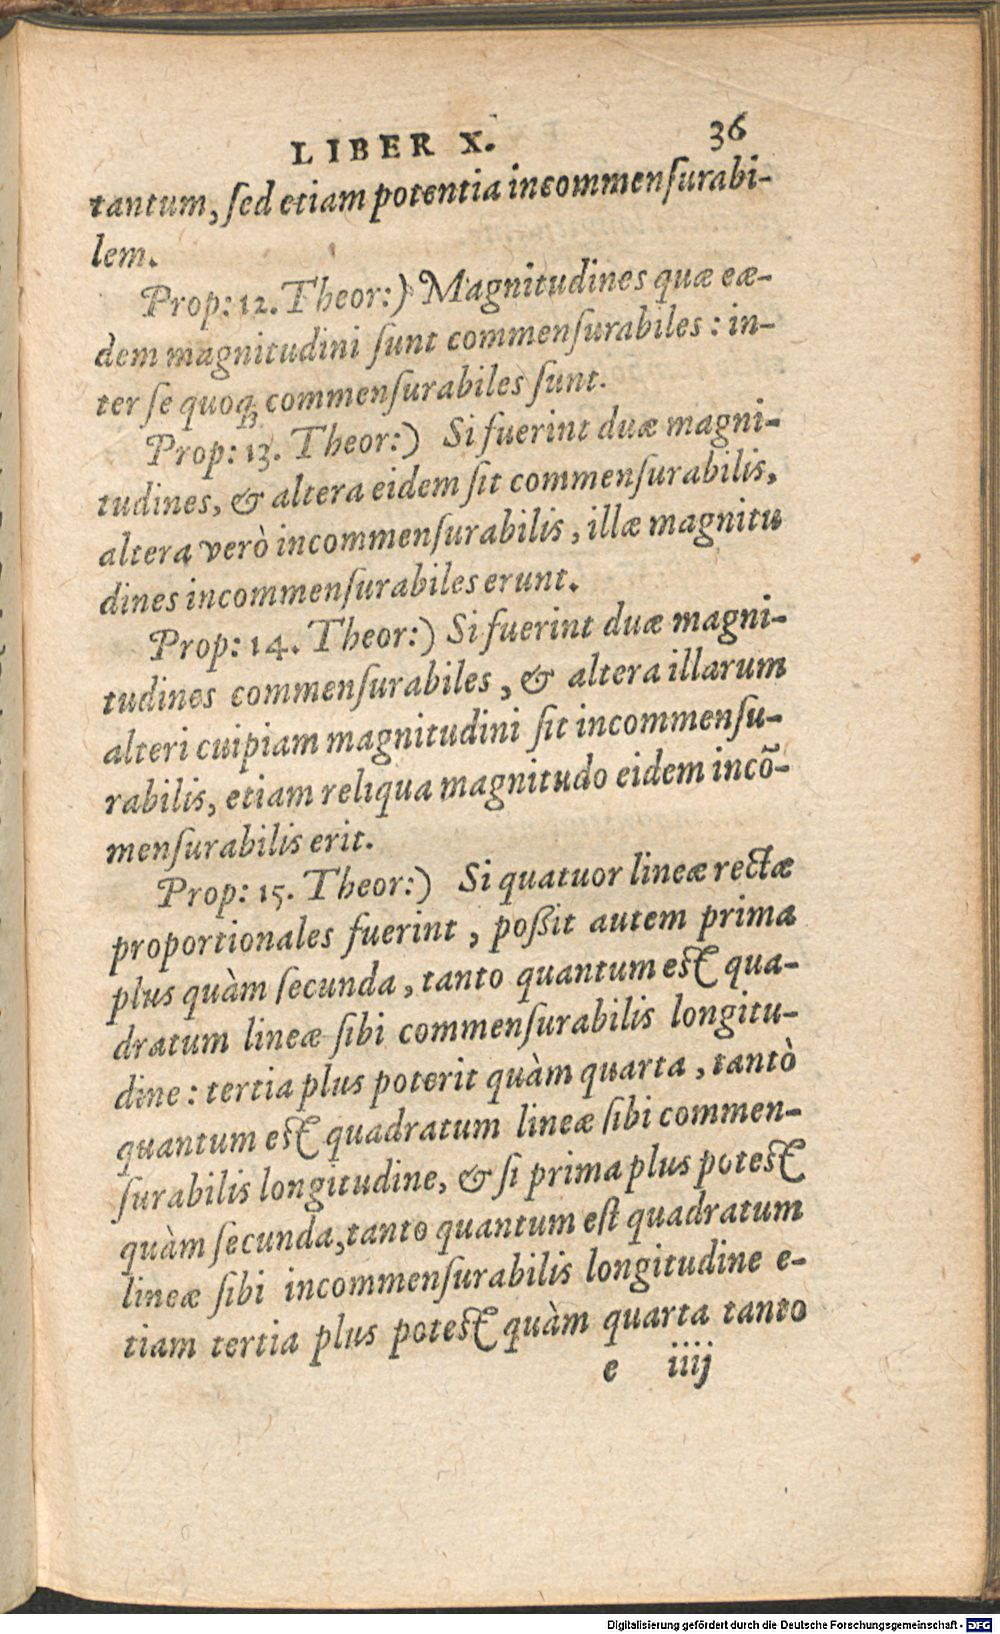 LIBER X. 36
tantum, ſed etiam potentia incommenſurabi-
lem.
Prop: 12. Theor:) Magnitudines quæ eæ-
dem magnitudini ſunt commenſurabiles: in-
ter ſe quoqꝫ commenſurabiles ſunt.
Prop: 13. Theor:) Si fuerint duæ magni-
tudines, & altera eidem ſit commenſurabilis,
altera verò incommenſurabilis, illæ magnitu
dines incommenſurabiles erunt.
Prop: 14. Theor:) Si fuerint duæ magni-
tudines commenſurabiles, & altera illarum
alteri cuipiam magnitudini ſit incommenſu-
rabilis, etiam reliqua magnitudo eidem incõ-
menſurabilis erit.
Prop: 15. Theor:) Si quatuor lineæ rectæ
proportionales fuerint, poßit autem prima
plus quàm ſecunda, tanto quantum eſt qua-
dratum lineæ ſibi commenſurabilis longitu-
dine: tertia plus poterit quàm quarta, tantò
quantum eſt quadratum lineæ ſibi commen-
ſurabilis longitudine, & ſi prima plus poteſt
quàm ſecunda, tanto quantum eſt quadratum
lineæ ſibi incommenſurabilis longitudine e-
tiam tertia plus poteſt quàm quarta tanto
e iiij
Digitalisierung gefördert durch die Deutsche Forschungsgemeinschaft - DFG